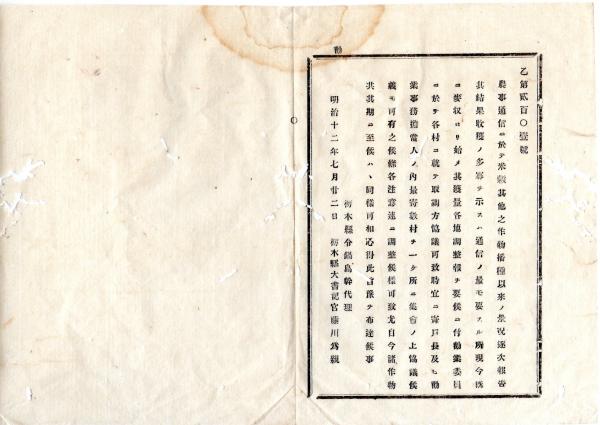 勸
乙第貳百〇壹號
農事通信ニ於テ米穀其他之作物播種以來ノ景況逐次報告
其結果收穫ノ多寡ヲ示スハ通信ノ最モ要スル所現今既
ニ麥収ヨリ始メ其獲量各地調整報ヲ要候ニ付勸業委員
ニ於テ各村ニ就テ取調方協議可致時宜ニ寄戸長及ヒ勸
業事務擔當人ノ内最寄數村ヲ一ケ所ニ集會ノ上協議候
義モ可有之候條各注意速ニ調整候樣可致尤自今諸作物
共其期ニ至候ハヽ同樣可相心得此旨豫テ布達候事
栃木縣令鍋島幹代理
明治十二年七月廿二日 栃木縣大書記官藤川爲親